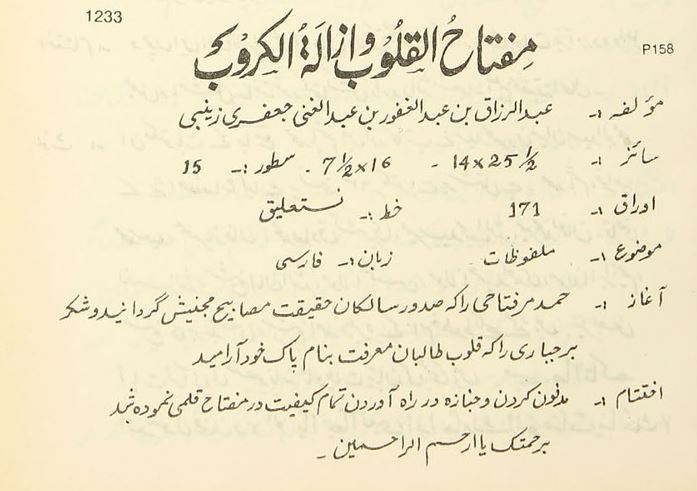 1233
مفتاحُ القلُوب وازالَةُ الکروب
P158
مؤلفہ :۔ عبدالرزاق بن عبدالغفور بن عبدالغنی جعفری زینبی
سائز :۔ 14x25½ - 7½x16 - سطور :۔ 15
اوراق :۔ 171 خط :۔ نستعلیق
موضوع :۔ ملفوظات زبان :۔ فارسی
آغاز :۔ حمد مرفتاحی راکہ صدور سالکان حقیقت مصابیح مجنیش گردانید و شکر
برجباری راکہ قلوب طالبان معرفت بنام پاک خود آرامید
اختتام :۔ مدفون کردن و جنازہ در راہ آوردن تمام کیفیت در مفتاح قلمی نمودہ شد
برحمتک یا ارحم الراحمین ۔